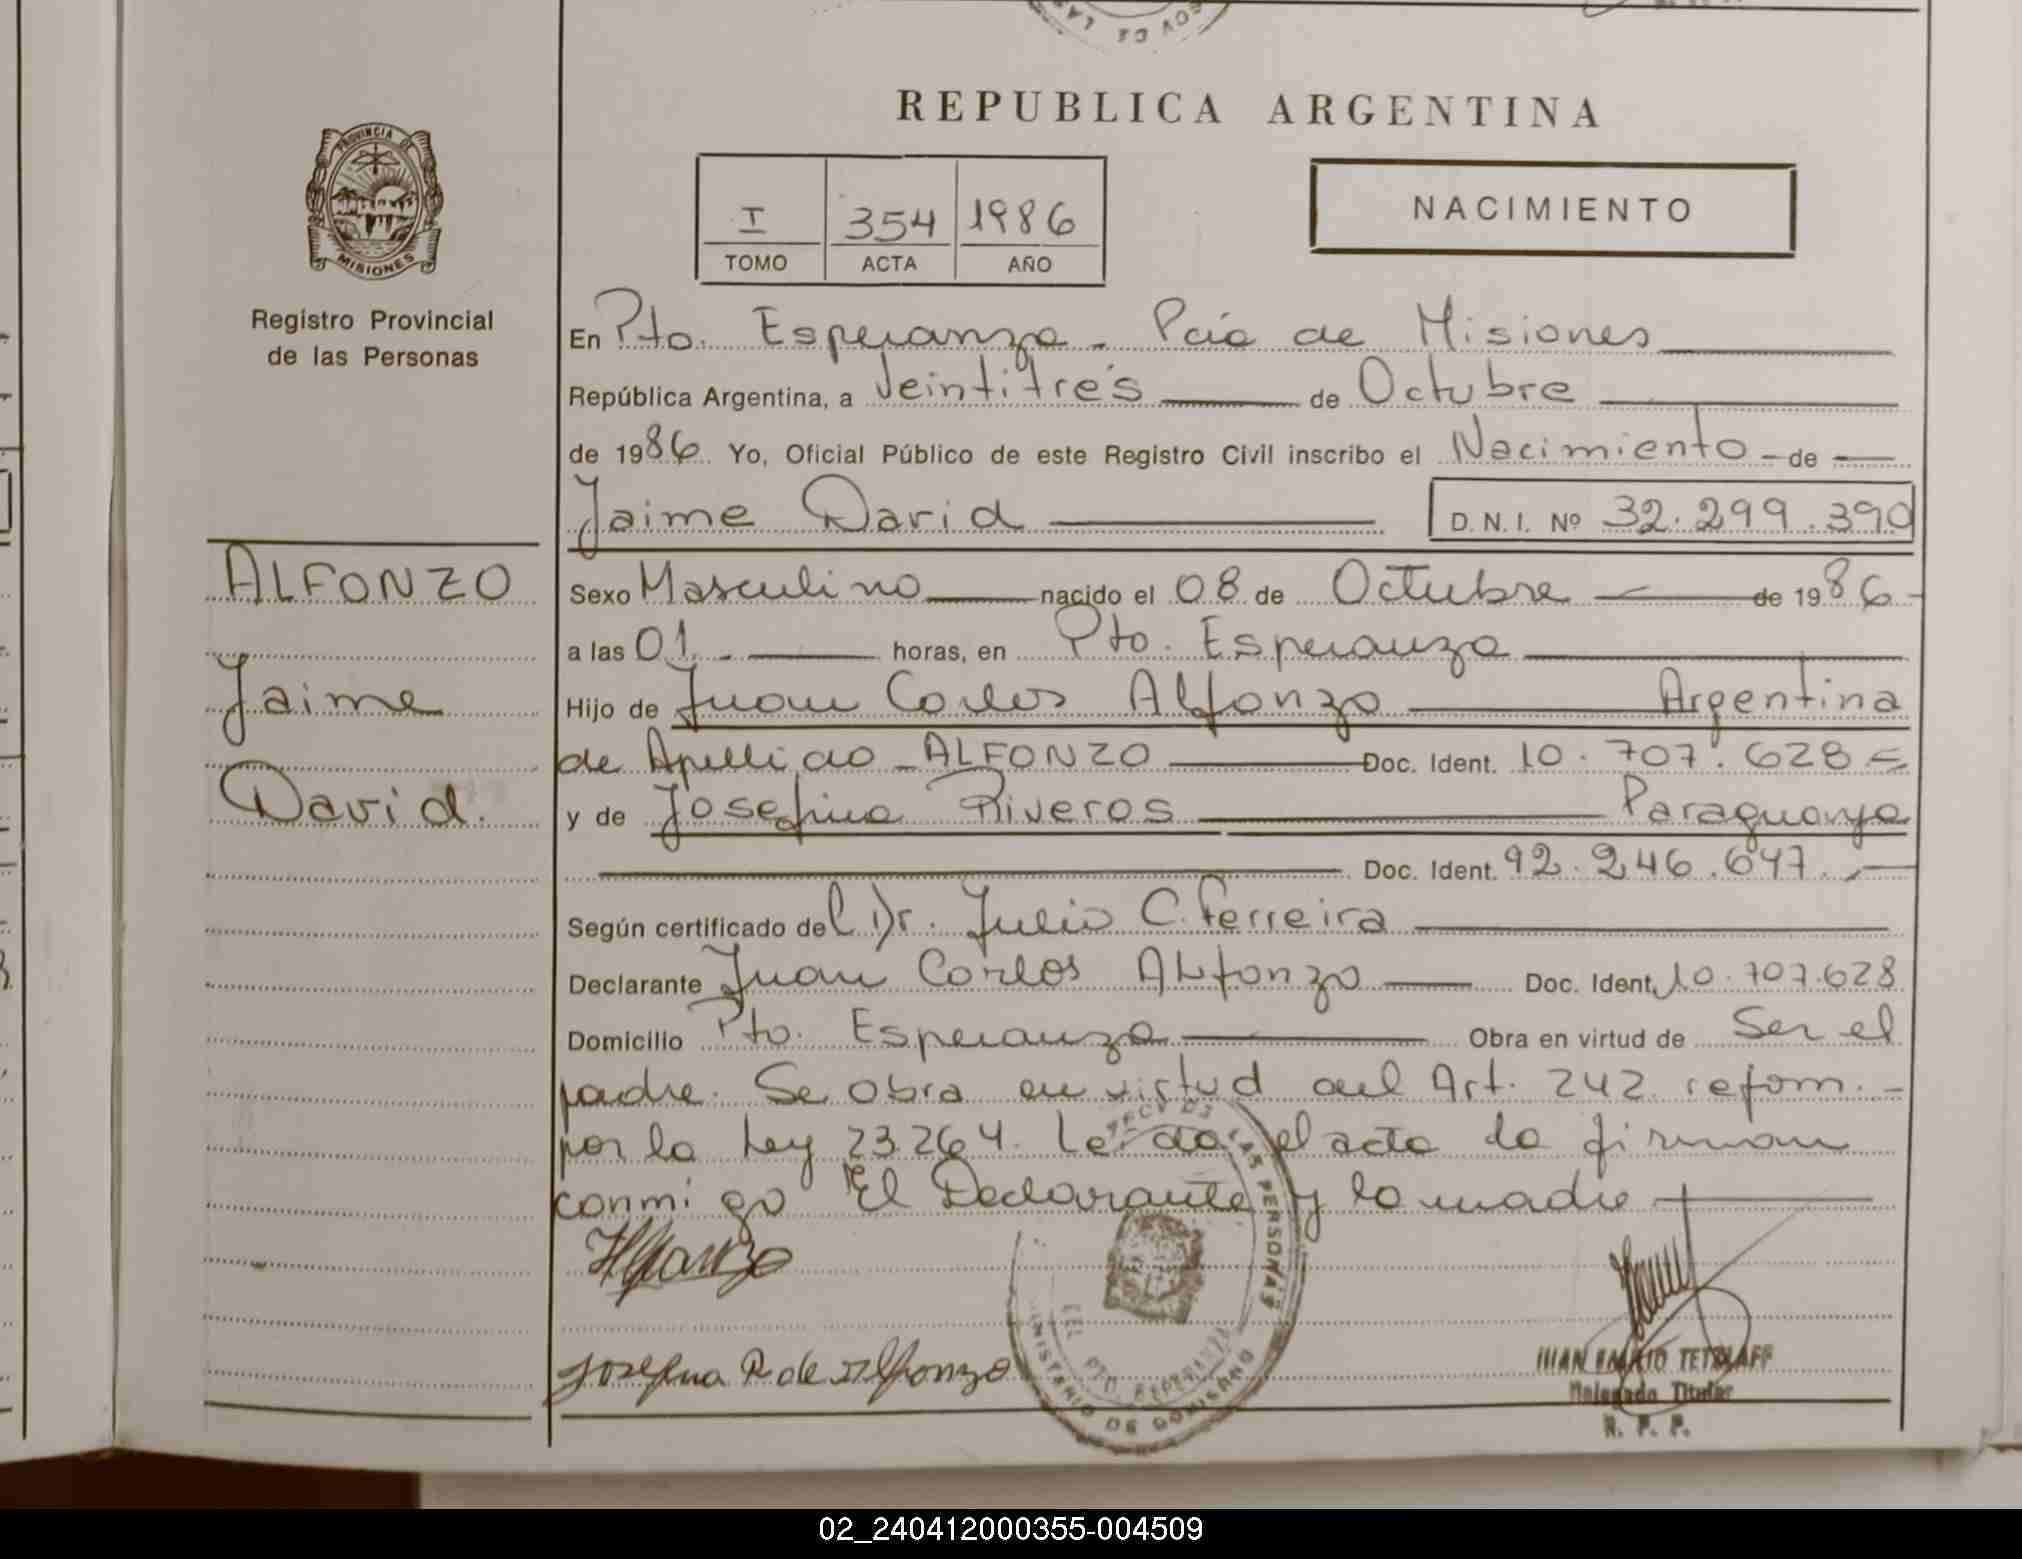 REPUBLICA ARGENTINA
PROVINCIA DE
MISIONES
Registro Provincial
de las Personas
I 354 1986
TOMO ACTA AÑO
NACIMIENTO
En Pto. Esperanza - Pcia de Misiones
República Argentina, a Veintitrés de Octubre
de 1986 Yo, Oficial Público de este Registro Civil inscribo el Nacimiento - de
Jaime David D. N. I. Nº 32.299.390
ALFONZO
Jaime
David.
Sexo Masculino nacido el 08 de Octubre de 1986
a las 01. horas, en Pto. Esperanza
Hijo de Juan Carlos Alfonzo Argentina
de Apellido - ALFONZO Doc. Ident. 10.707.628
y de Josefina Riveros Paraguaya
Doc. Ident. 92.246.647.
Según certificado del Dr. Julio C. Ferreira
Declarante Juan Carlos Alfonzo Doc. Ident. 10.707.628
Domicilio Pto. Esperanza Obra en virtud de Ser el
padre. Se obra en virtud del Art. 242 reform. -
por la Ley 23.264. Leida el acta la firman
conmigo El Declarante y la madre
Josefina R de Alfonzo
LAS PERSONAS
PTO. ESPERANZA
MINISTERIO DE GOBIERNO
JUAN EMILIO TETZLAFF
Delegado Titular
R. P. P.
02_240412000355-004509